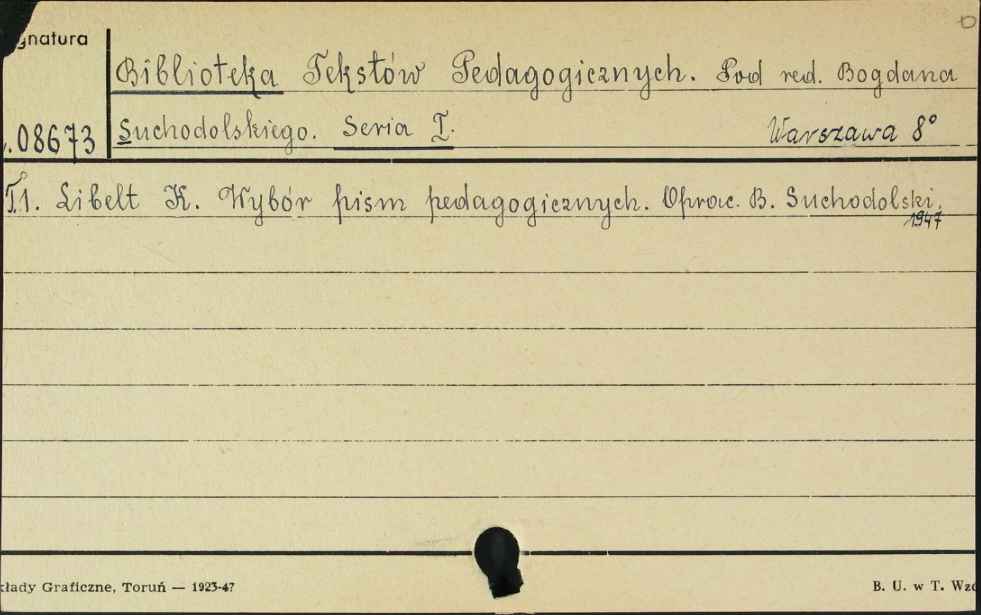 gnatura
Biblioteka Tekstów Pedagogicznych. Pod red. Bogdana
.08673 Suchodolskiego. Seria I. Warszawa 8°
T.1. Libelt K. Wybór pism pedagogicznych. Oprac. B. Suchodolski.
1947
kłady Graficzne, Toruń — 1923-47
B. U. w T. Wzó